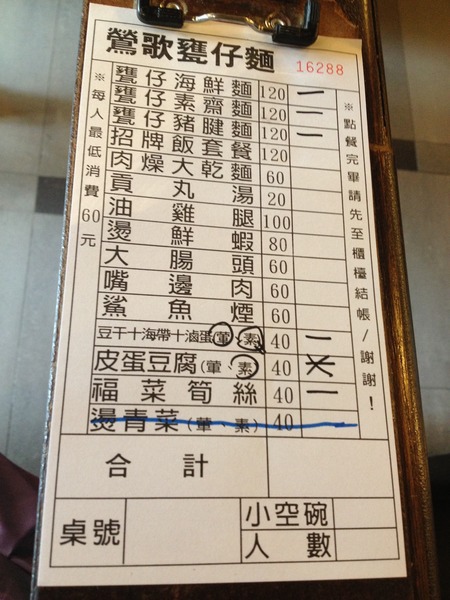 鶯歌甕仔麵
16288
※每人最低消費60元
甕仔海鮮麵 120 一
甕仔素齋麵 120 一
甕仔豬腱麵 120 一
招牌飯套餐 120
肉燥大乾麵 60
貢丸湯 20
油雞腿 100
燙鮮蝦 80
大腸頭 60
嘴邊肉 60
鯊魚煙 60
豆干十海帶十滷蛋(葷、素) 40 一
皮蛋豆腐(葷、素) 40
福菜筍絲 40 一
燙青菜(葷、素) 40
※點餐完畢請先至櫃檯結帳/謝謝!
合計
桌號
小空碗
人數